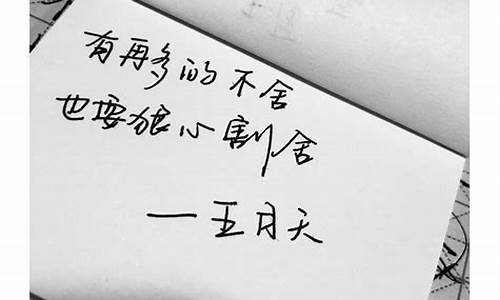 有再多的不舍
也要狠心割舍
—五月天